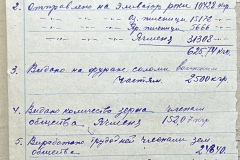 2. Отправлено на элеватор ржи 10428 кгр.
" — " пшеницы 15172 — "
" — " Яр. пшеницы 5666 "
" — " Ячменя 31308 — "
62574 кгр.
3. Выдано на фураж соломы
частям. 2500 кгр.
4. Выдано количество зерна членам
общества Ячменя 15207 кгр.
5. Выработано трудодней членами
общества